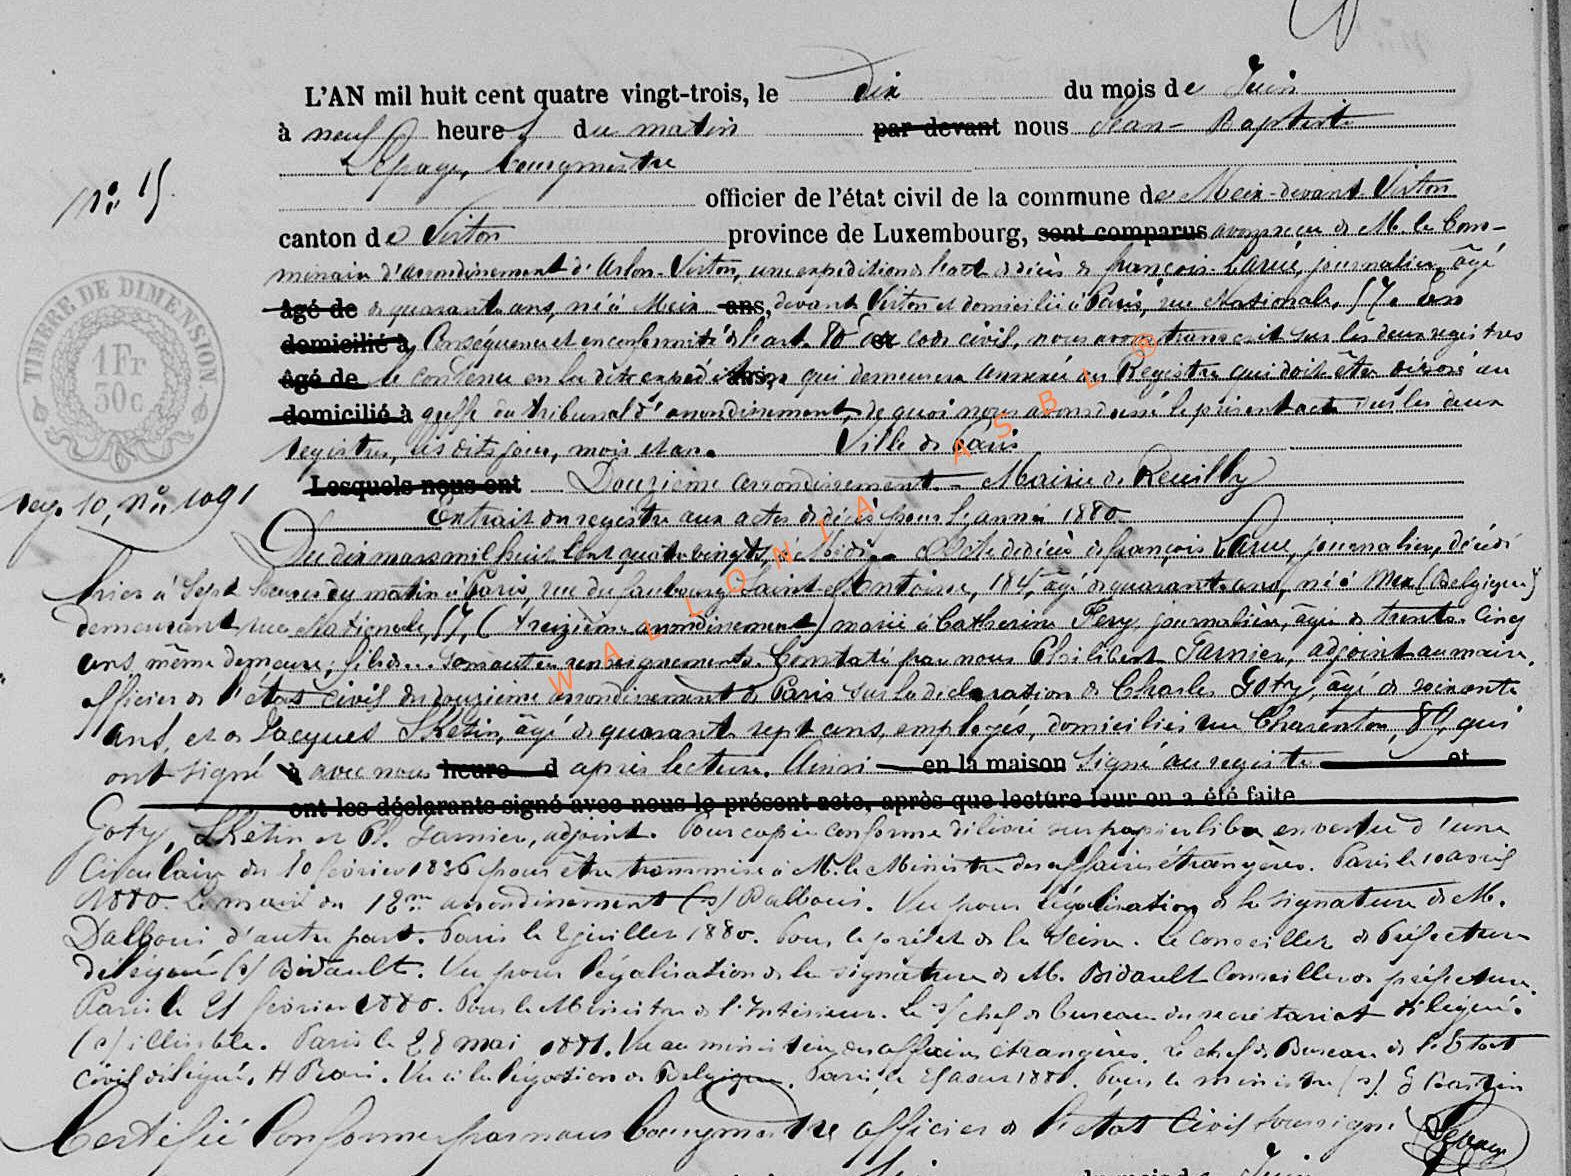 L'AN mil huit cent quatre vingt-trois, le dix du mois de Juin
à neuf heures du matin par devant nous Jean-Baptiste
Lepage, bourgmestre
N° 15.
officier de l'état civil de la commune de Meix-devant-Virton
canton de Virton province de Luxembourg, sont comparus avons reçu de M. le Com-
missaire d'arrondissement d'Arlon-Virton, une expédition de l'acte de décès de françois Larue, journalier, âgé
âgé de de quarante ans, né à Meix ans, devant Virton et domicilié à Paris, rue Nationale, 57. En
domicilié à Conséquence et en conformité de l'art. 80 et du code civil, nous avons transcrit sur les deux registres
âgé de le contenu en la dite expédition ans, qui demeurera annexé au Registre qui doit être déposé au
domicilié à greffe du tribunal d'arrondissement, de quoi nous avons dressé le présent acte sur les deux
registres, les dits jour, mois et an. Ville de Paris
TIMBRE DE DIMENSION
1 Fr
30c
Lesquels nous ont Douzième arrondissement - Mairie de Reuilly
reg. 10, N° 1091
Extrait du registre aux actes de décès pour l'année 1880
Du dix mars mil huit cent quatre vingts, à Midi. - Acte de décès de françois Larue, journalier, décédé
hier à sept heures du matin à Paris, rue du faubourg Saint-Antoine, 184, âgé de quarante ans, né à Mex (Belgique)
demeurant rue Nationale, 57, (treizième arrondissement) marié à Catherine Fery, journalière, âgée de trente-cinq
ans, même demeure; fils de.. sans autres renseignements. Constaté par nous Philibert Garnier, adjoint au maire,
officier de l'état civil du douzième arrondissement de Paris sur la déclaration de Charles Goty, âgé de soixante
ans, et de Jacques Skétin, âgé de quarante sept ans, employés, domiciliés rue Charenton, 89, qui
ont signé à avec nous heure d après lecture. Ainsi en la maison signé au registre et
ont les déclarants signé avec nous le présent acte, après que lecture leur en a été faite
Goty, Skétin et Ph. Garnier, adjoint. Pour copie conforme délivrée sur papier libre en vertu d'une
Circulaire du 10 février 1836 pour être transmise à M. le Ministre des affaires étrangères. Paris le 10 avril
1880. Le maire du 12me arrondissement (s) Dalloui. Vu pour légalisation de la signature de M.
Dalloui, d'autre part. Paris le 2 juillet 1880. Pour le préfet de la Seine. Le Conseiller de Préfecture
délégué (s) Bidault. Vu pour légalisation de la signature de M. Bidault Conseiller de préfecture.
Paris le 21 février 1880. Pour le Ministre de l'Intérieur. Le s/chef de bureau du secrétariat délégué.
(s) illisible. Paris le 28 mai 1881. Vu au ministère des affaires étrangères. Le chef de Bureau de l'Etat
Civil délégué, H Vu à la légation de Belgique. Paris, le 1881. Pour le ministre (s). Bastin
Certifié Conforme par nous bourgmestre officier de l'état Civil soussigné Lepage
du mois de Juin
WALLONIA ASBL ®